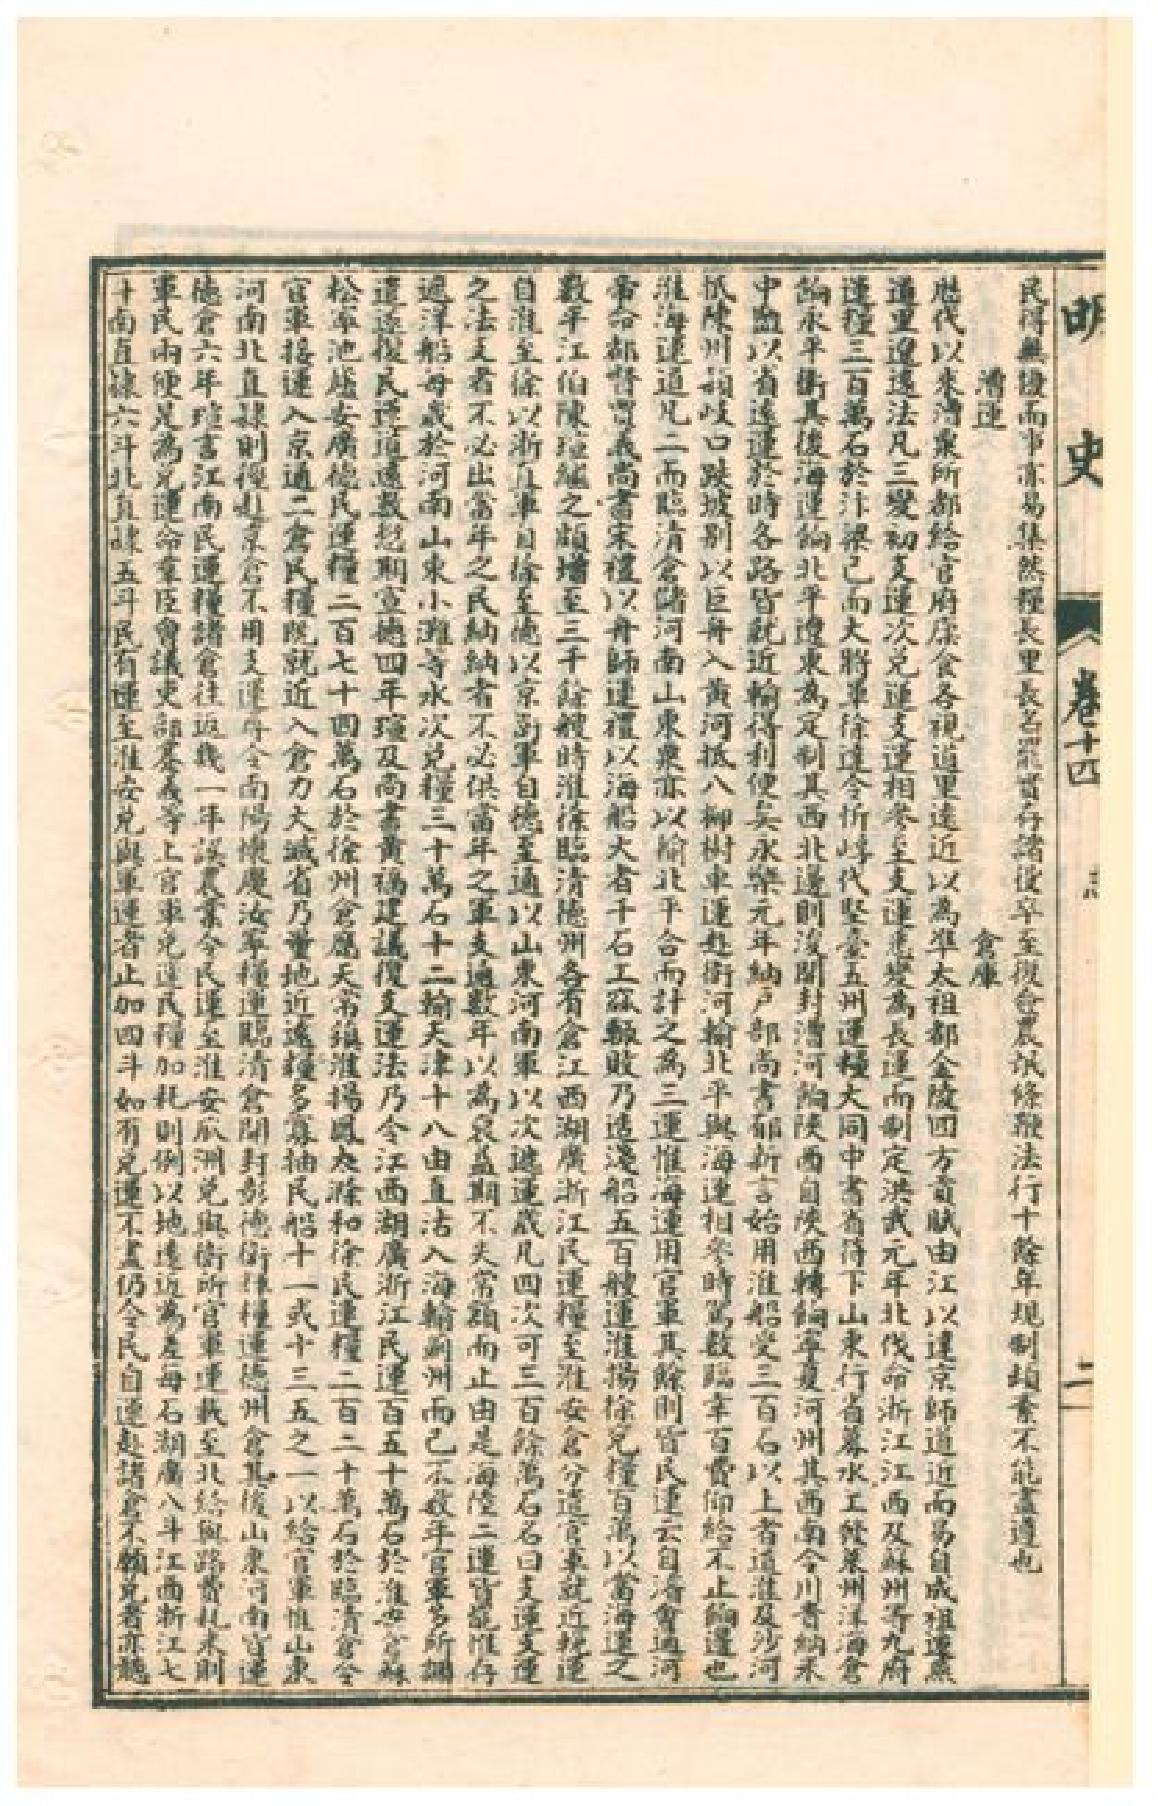 明史 卷十四 志 二
民得無擾而事亦易集然糧長里長名罷實存諸役卒至復僉農氓條鞭法行十餘年規制頓紊不能盡遵也
漕運 倉庫
歷代以來漕粟所都給官府廩食各視道里遠近以為準太祖都金陵四方貢賦由江以達京師道近而易自成祖遷燕
道里遼遠法凡三變初支運次兌運支運相參至支運悉變為長運而制定洪武元年北伐命浙江江西及蘇州等九府
運糧三百萬石於汴梁已而大將軍徐達令忻崞代堅臺五州運糧大同中書省符下山東行省募水工發萊州洋海倉
餉永平衛其後海運餉北平遼東為定制其西北邊則浚開封漕河餉陝西自陝西轉餉寧夏河州其西南令川貴納米
中鹽以省遠運於時各路皆就近輸得利便矣永樂元年納戶部尚書郁新言始用淮船受三百石以上者道淮及沙河
抵陳州潁岐口跌坡別以巨舟入黃河抵八柳樹車運赴衛河輸北平與海運相參時駕數臨幸百費仰給不止餉邊也
淮海運道凡二而臨清倉儲河南山東粟亦以輸北平合而計之為三運惟海運用官軍其餘則皆民運云自濬會通河
帝命都督賈義尚書宋禮以舟師運禮以海船大者千石工窳輒敗乃造淺船五百艘運淮揚徐兗糧百萬以當海運之
數平江伯陳瑄繼之頗增至三千餘艘時淮徐臨清德州各有倉江西湖廣浙江民運糧至淮安倉分遣官軍就近輓運
自淮至徐以浙直軍自徐至德以京衛軍自德至通以山東河南軍以次遞運歲凡四次可三百餘萬石名曰支運支運
之法支者不必出當年之民納納者不必供當年之軍支通數年以為裒益期不失常額而止由是海陸二運皆罷惟存
遮洋船每歲於河南山東小灘等水次兌糧三十萬石十二輸天津十八由直沽入海輸薊州而已不數年官軍多所調
遣遂復民運道遠數愆期宣德四年瑄及尚書黃福建議復支運法乃令江西湖廣浙江民運百五十萬石於淮安倉蘇
松寧池廬安廣德民運糧二百七十四萬石於徐州倉應天常鎮淮揚鳳太滁和徐民運糧二百二十萬石於臨清倉令
官軍接運入京通二倉民糧既就近入倉力大減省乃量地近遠糧多寡抽民船十一或十三五之一以給官軍惟山東
河南北直隸則徑赴京倉不用支運尋令南陽懷慶汝寧糧運臨清倉開封彰德衛輝糧運德州倉其後山東河南皆運
德倉六年瑄言江南民運糧諸倉往返幾一年誤農業令民運至淮安瓜洲兌與衛所官軍運載至北給與路費耗米則
軍民兩便是為兌運命羣臣會議吏部蹇義等上官軍兌運民糧加耗則例以地遠近為差每石湖廣八斗江西浙江七
斗南直隸六斗北直隸五斗民有運至淮安兌與軍運者止加四斗如有兌運不盡仍令民自運赴諸倉不願兌者亦聽